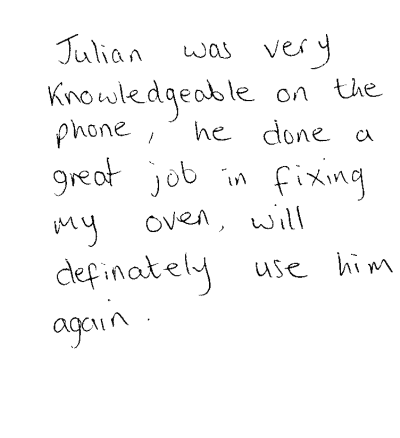 Julian was very
Knowledgeable on the
phone, he done a
great job in fixing
my oven, will
definately use him
again.